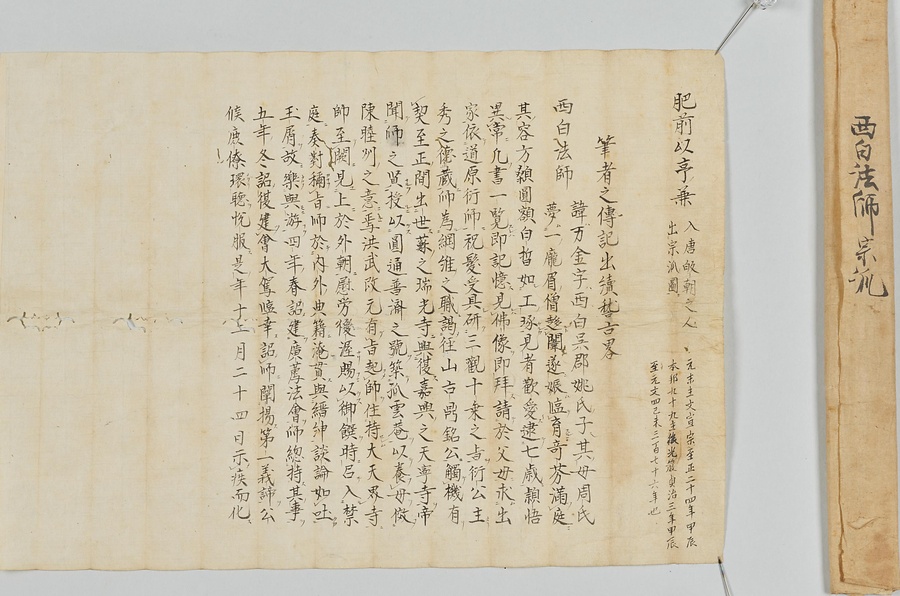 肥前以亨兼
入唐皈朝之人
出宗派圖
元末主文宣宗至正二十四年甲辰
本邦九十九主後光嚴貞治三年甲辰
至元文四己未三百七十六年也
筆者之傳記出續稽古畧
西白法師 諱万金字西白吳郡姚氏子其母周氏
夢一龐眉僧趂闈遂娠臨育奇芬滿庭
其容方頬圓額白晳如工琢見者歡愛逮七歳頴悟
異常凡書一覽即記憶見佛像即拜請於父母求出
家依道原衍師祝髮受具研三觀十乘之吉衍公主
秀之德藏師為綱維之職謁徃山古鼎銘公觸機有
契至正間出世蘇之瑞光寺興復嘉興之天寧寺帝
聞師之贤投以圓通普濟之號築孤雲菴以養母倣
陳睦州之意焉洪武改元有旨起師住持大天界寺
師至闕見上於外朝慰勞優渥賜以御饌時召入禁
庭奏對稱旨師於内外典籍淹貫與縉紳談論如吐
玉屑故樂與游四年春詔建廣薦法會師總持其事
五年冬詔復建會大駕臨幸詔師闡揚第一義諦公
候庶僚環聴悦服是年十二月二十四日示疾而化
西白法師宗派